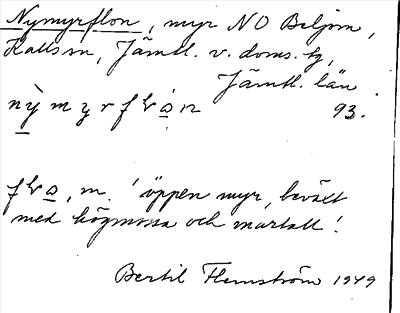 Nymyrflon, myr NO Beljom,
Kallsm, Jämtl. v. doms. tg,
Jämtl. län.
nỳmyrflon 93.
flo, m. 'öppen myr, beväxt
med högmossa och martall'.
Bertil Flemström 1949